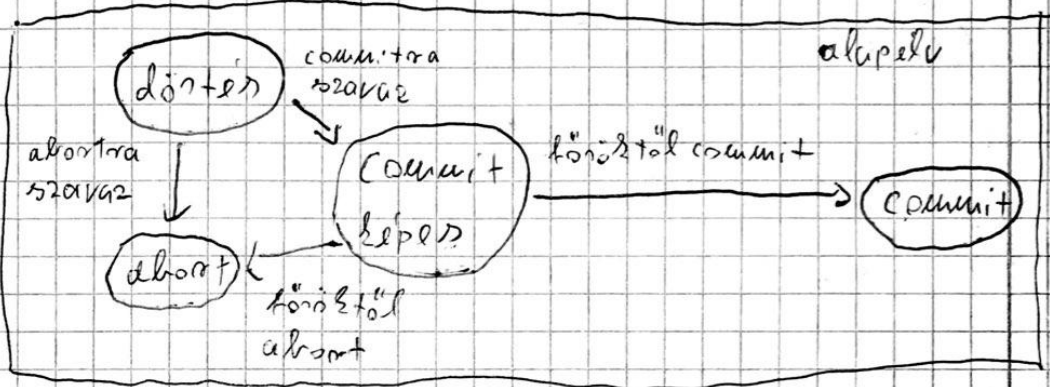 alapelv
döntés
commitra
szavaz
abortra
szavaz
commit
képes
főnöktől commit
commit
abort
főnöktől
abort